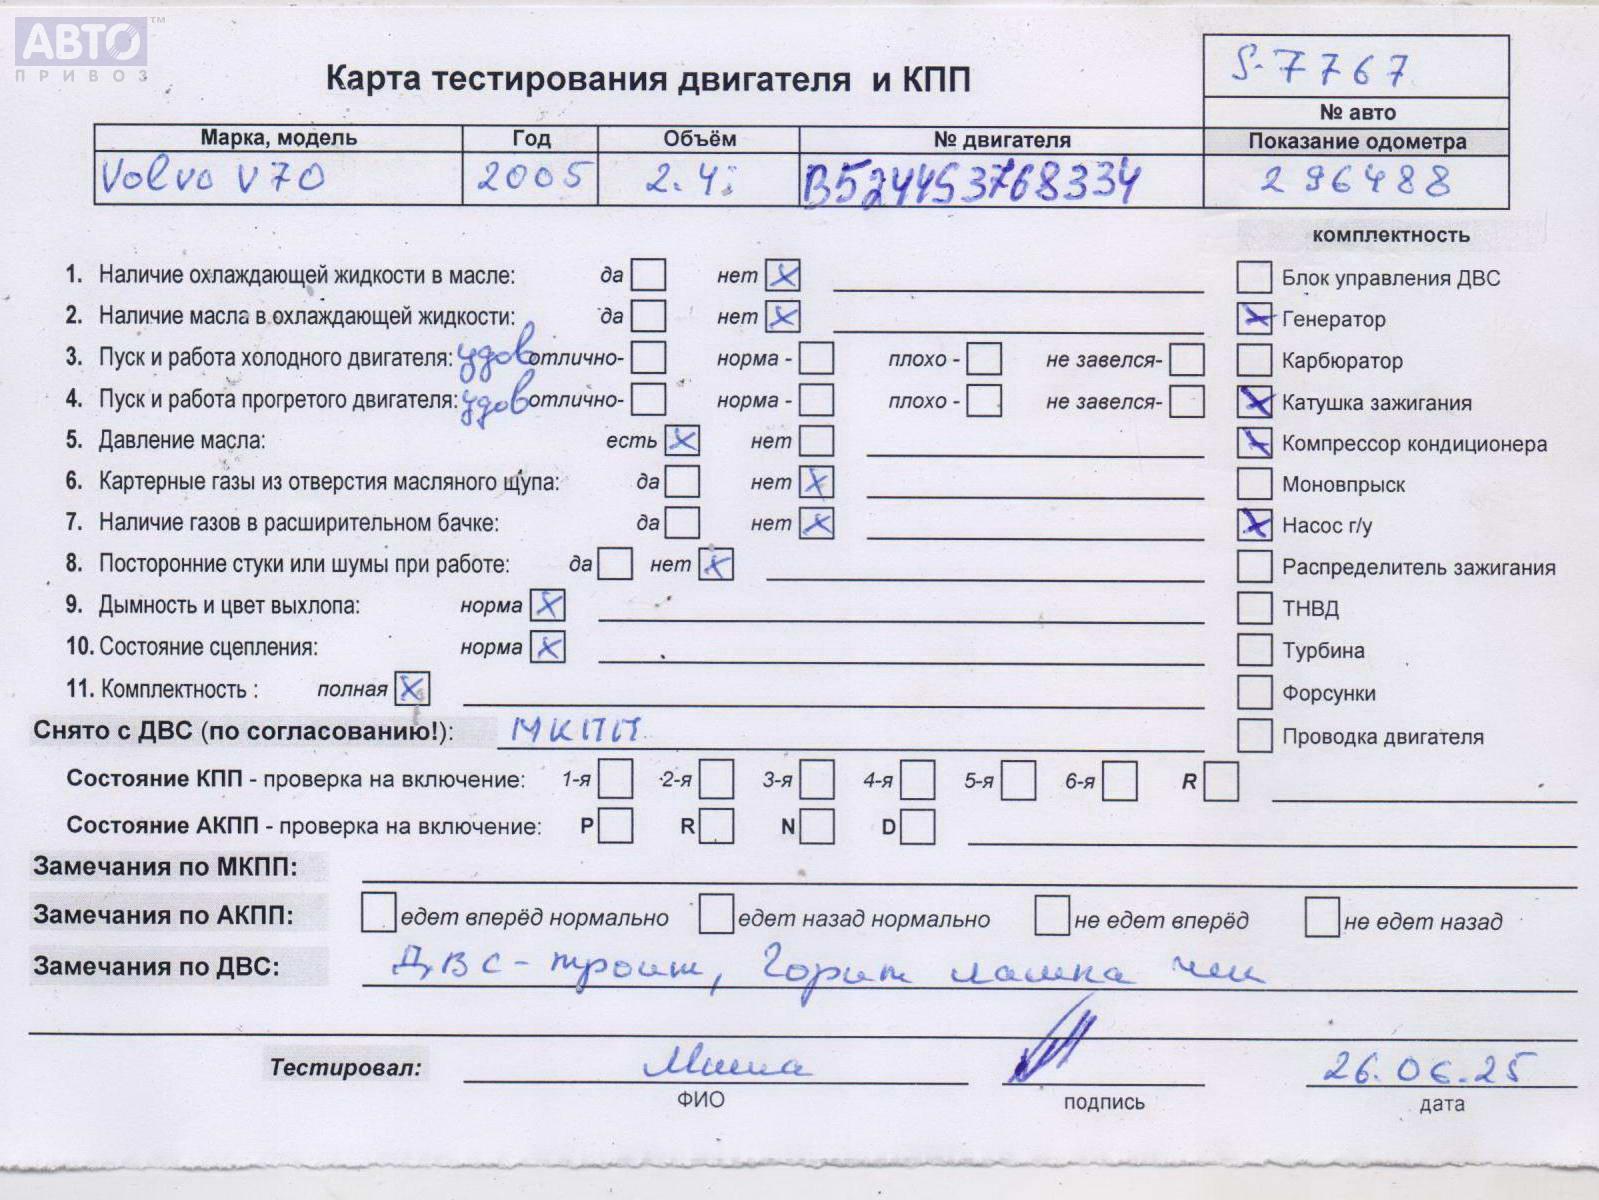 АВТО™
ПРИВОЗ
Карта тестирования двигателя и КПП
S-7767
№ авто
Марка, модель Год Объём № двигателя Показание одометра
Volvo V70 2005 2.4i B5244S3768334 296488
комплектность
1. Наличие охлаждающей жидкости в масле: да нет X Блок управления ДВС
2. Наличие масла в охлаждающей жидкости: да нет X X Генератор
3. Пуск и работа холодного двигателя: удов отлично- норма - плохо - не завелся- Карбюратор
4. Пуск и работа прогретого двигателя: удов отлично- норма - плохо - не завелся- X Катушка зажигания
5. Давление масла: есть X нет X Компрессор кондиционера
6. Картерные газы из отверстия масляного щупа: да нет X Моновпрыск
7. Наличие газов в расширительном бачке: да нет X X Насос г/у
8. Посторонние стуки или шумы при работе: да нет X Распределитель зажигания
9. Дымность и цвет выхлопа: норма X ТНВД
10. Состояние сцепления: норма X Турбина
11. Комплектность : полная X Форсунки
Снято с ДВС (по согласованию!): МКПП Проводка двигателя
Состояние КПП - проверка на включение: 1-я 2-я 3-я 4-я 5-я 6-я R
Состояние АКПП - проверка на включение: P R N D
Замечания по МКПП:
Замечания по АКПП: едет вперёд нормально едет назад нормально не едет вперёд не едет назад
Замечания по ДВС: ДВС - троит, Горит лампа чек
Тестировал: Миша 26.06.25
ФИО подпись дата